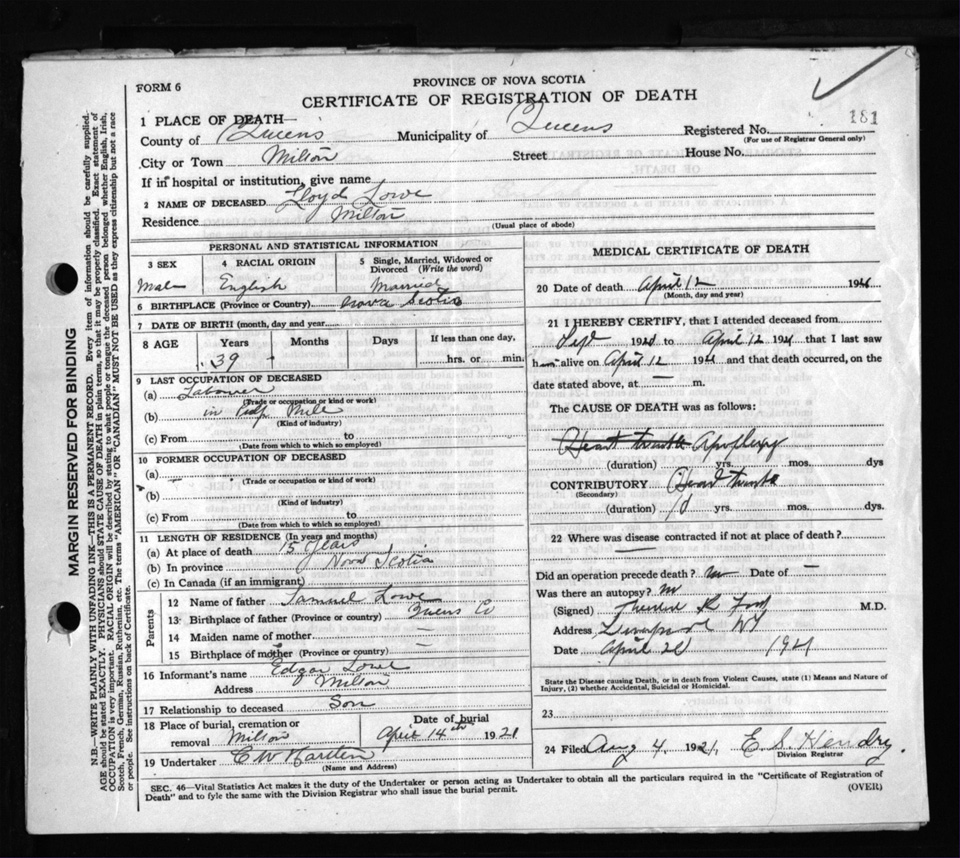 PROVINCE OF NOVA SCOTIA
FORM 6
CERTIFICATE OF REGISTRATION OF DEATH
181
1 PLACE OF DEATH
County of Queens Municipality of Queens Registered No.
(For use of Registrar General only)
City or Town Milton Street House No.
If in hospital or institution, give name
2 NAME OF DECEASED Lloyd Lowe
Residence Milton
(Usual place of abode)
PERSONAL AND STATISTICAL INFORMATION
3 SEX
Male
4 RACIAL ORIGIN
English
5 Single, Married, Widowed or
Divorced (Write the word)
Married
6 BIRTHPLACE (Province or Country) Nova Scotia
7 DATE OF BIRTH (month, day and year)
8 AGE Years Months Days If less than one day,
39 - hrs. or min.
9 LAST OCCUPATION OF DECEASED
(a) Labourer
(Trade or occupation or kind or work)
(b) in Pulp Mill
(Kind of industry)
(c) From to
(Date from which to which so employed)
10 FORMER OCCUPATION OF DECEASED
(a) -
(Trade or occupation or kind of work)
(b)
(Kind of industry)
(c) From to
(Date from which to which so employed)
11 LENGTH OF RESIDENCE (In years and months)
(a) At place of death 15 years
(b) In province Nova Scotia
(c) In Canada (if an immigrant)
Parents
12 Name of father Samuel Lowe
13 Birthplace of father (Province or country) Queens Co
14 Maiden name of mother —
15 Birthplace of mother (Province or country) —
16 Informant's name Edgar Lowe
Address Milton
17 Relationship to deceased Son
18 Place of burial, cremation or
removal Milton
Date of burial
April 14th 1921
19 Undertaker C W
(Name and Address)
MEDICAL CERTIFICATE OF DEATH
20 Date of death April 12 192
(Month, day and year)
21 I HEREBY CERTIFY, that I attended deceased from
Sept 192 to April 12 1921 that I last saw
h alive on April 12 1921 and that death occurred, on the
date stated above, at — m.
The CAUSE OF DEATH was as follows:
Heart trouble Apoplexy
(duration) yrs. mos. dys
CONTRIBUTORY Heart trouble
(Secondary)
(duration) yrs. mos. dys.
22 Where was disease contracted if not at place of death?
—
Did an operation precede death? no Date of —
Was there an autopsy? no
(Signed) M.D.
Address Liverpool NS
Date April 20 1921
State the Disease causing Death, or in death from Violent Causes, state (1) Means and Nature of
Injury, (2) whether Accidental, Suicidal or Homicidal.
23
24 Filed Aug 4, 1921. E. S. Hendry.
Division Registrar
SEC. 46—Vital Statistics Act makes it the duty of the Undertaker or person acting as Undertaker to obtain all the particulars required in the "Certificate of Registration of
Death" and to fyle the same with the Division Registrar who shall issue the burial permit.
(OVER)
MARGIN RESERVED FOR BINDING
N.B.—WRITE PLAINLY WITH UNFADING INK—THIS IS A PERMANENT RECORD. Every item of information should be carefully supplied.
AGE should be stated EXACTLY. PHYSICIANS should STATE CAUSE OF DEATH in plain terms, so that it may be properly classified. Exact statement of
OCCUPATION is very important. RACIAL ORIGIN will be described by stating to what people or tongue the deceased person belonged whether English, Irish,
Scotch, French, German, Russian, Ruthenian, etc. The terms "AMERICAN" or "CANADIAN" MUST NOT BE USED as they express citizenship but not a race
or people. See instructions on back of Certificate.